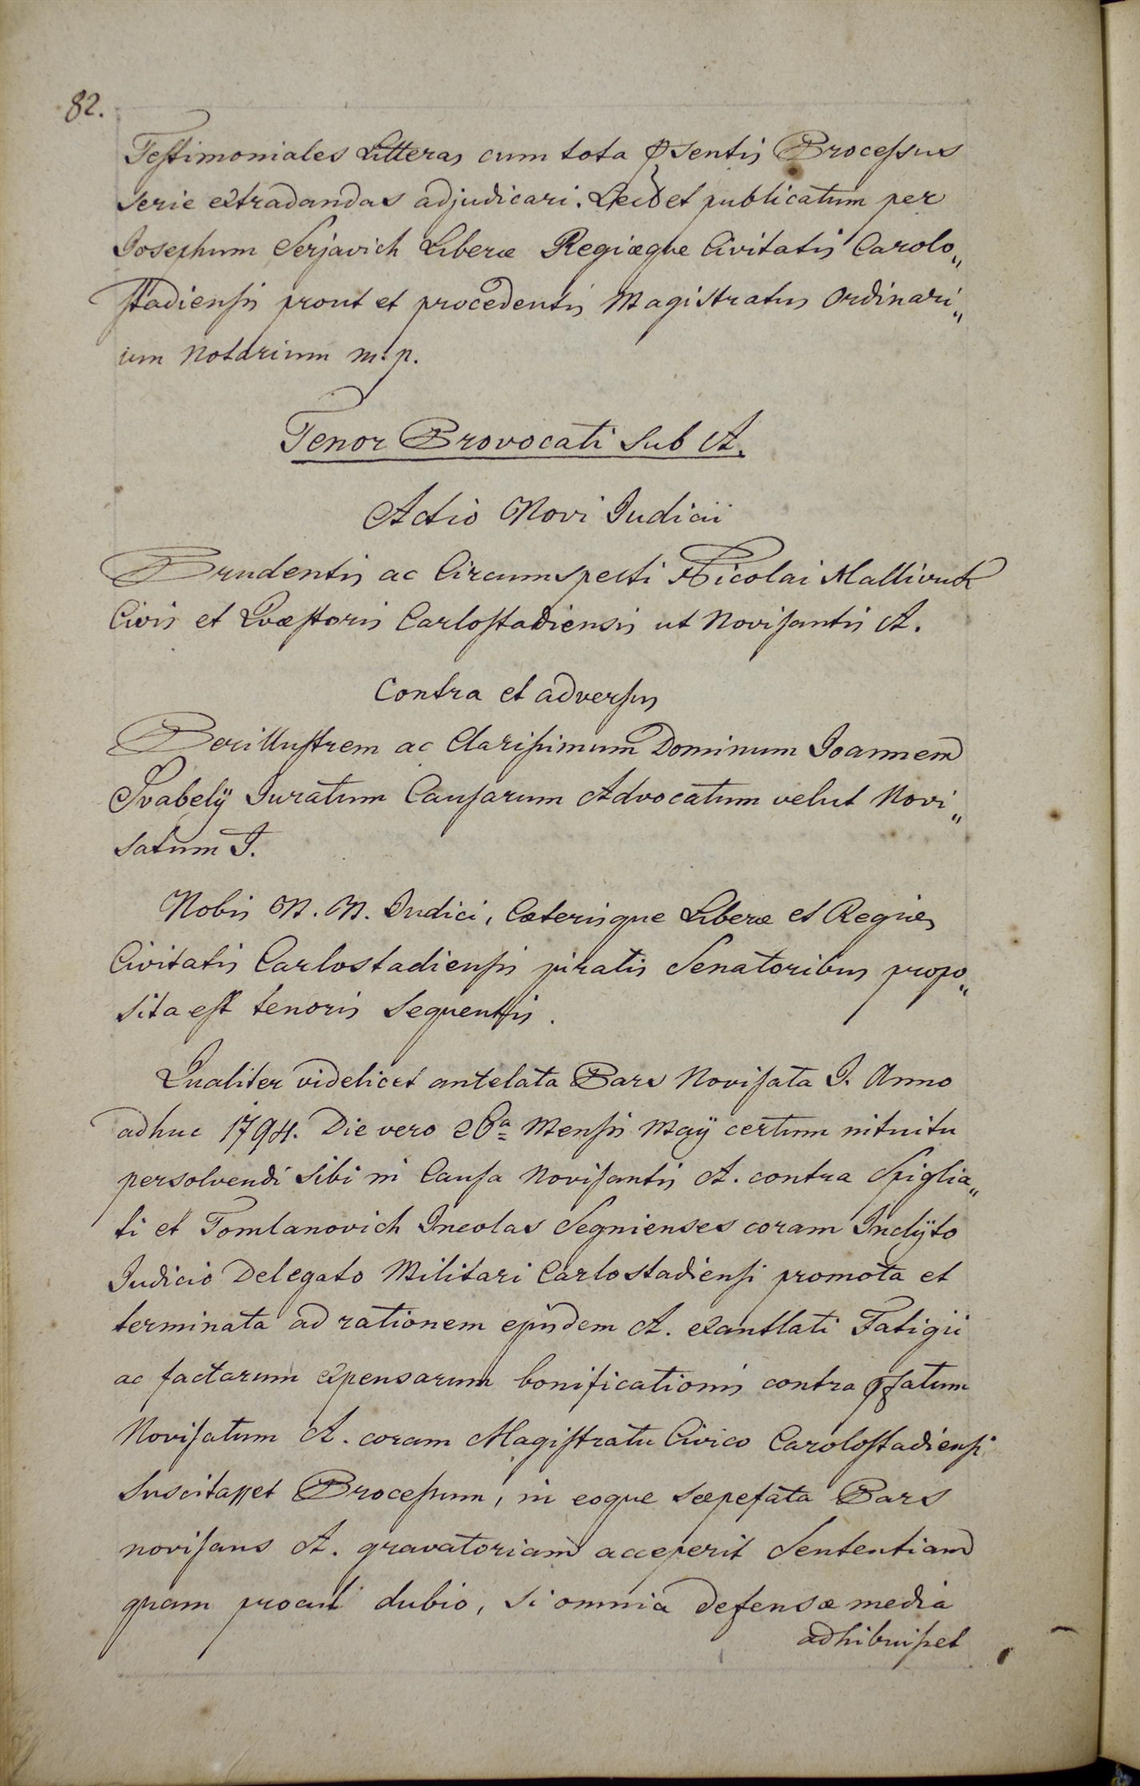 82.
Testimoniales Litteras cum tota psentis Processus
serie extradandas adjudicari. Lect et publicatum per
Josephum Serjavich Liberæ Regiæque Civitatis Carolo„
stadiensis prout et procedentis Magistratus Ordinari„
ium Notarium m. p.
Tenor Provocati sub A.
Actio Novi Judicii
Prudentis ac Circumspecti Nicolai Mallivuk
Civis et Quæstoris Carlostadiensis ut Novisantis A.
Contra et adversus
Perillustrem ac Clarissimum Dominum Joannem
Svabelÿ Juratum Causarum Advocatum velut Novi„
satum I.
Nobis N. N. Judici, Cæterisque Liberæ et Regiæ
Civitatis Carlostadiensis juratis Senatoribus propo„
sita est tenoris sequentis.
Qualiter videlicet antelata Pars Novisata I. Anno
adhuc 1794. Die vero 26a Mensis Maÿ certum intuitu
persolvendi sibi in Causa Novisantis A. contra Spiglia„
ti et Tomlanovich Incolas Segnienses coram Inclÿto
Judicio Delegato Militari Carlostadiensi promota et
terminata ad rationem ejusdem A. exantlati Fatigii
ac factarum expensarum bonificationis contra pfatum
Novisatum A. coram Magistratu Civico Carolostadiensi
suscitasset Processum, in eoque sæpefata Pars
novisans A. gravatoriam acceperit Sententiam
quam procul dubio, si omnia defensæ media
adhibuisset